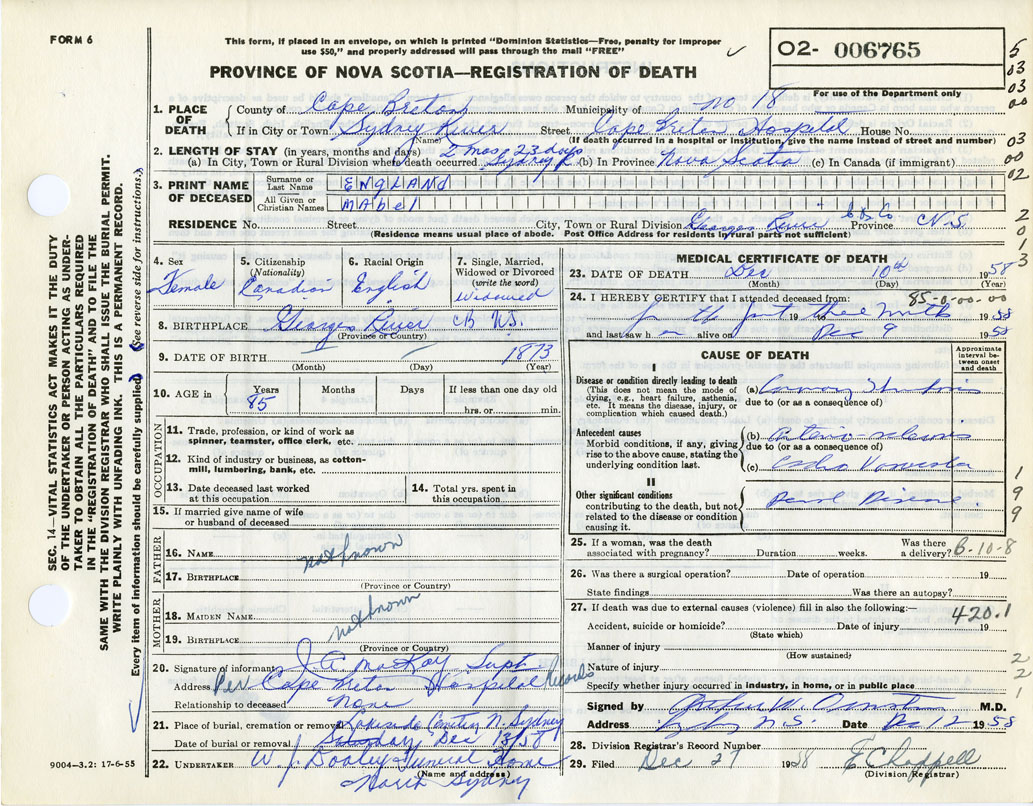 FORM 6
This form, if placed in an envelope, on which is printed "Dominion Statistics—Free, penalty for improper
use $50," and properly addressed will pass through the mail "FREE"
02- 006765
For use of the Department only
PROVINCE OF NOVA SCOTIA—REGISTRATION OF DEATH
5
03
03
00
03
00
02
2
0
1
3
1. PLACE OF DEATH
County of Cape Breton Municipality of no. 18
If in City or Town Sydney River Street Cape Breton Hospital House No.
(Name) (If death occurred in a hospital or institution, give the name instead of street and number)
2. LENGTH OF STAY (in years, months and days) 2 mos 23 days
(a) In City, Town or Rural Division where death occurred Sydney R. (b) In Province Nova Scotia (c) In Canada (if immigrant)
3. PRINT NAME OF DECEASED
Surname or Last Name ENGLAND
All Given or Christian Names Mabel
RESIDENCE No. Street City, Town or Rural Division Georges River C.B. Co Province N.S.
(Residence means usual place of abode. Post Office Address for residents in rural parts not sufficient)
4. Sex Female
5. Citizenship (Nationality) Canadian
6. Racial Origin English
7. Single, Married, Widowed or Divorced (write the word) Widowed
8. BIRTHPLACE Georges River CB NS.
(Province or Country)
9. DATE OF BIRTH 1873
(Month) (Day) (Year)
10. AGE in Years 85 Months Days If less than one day old
hrs. or min.
OCCUPATION
11. Trade, profession, or kind of work as
spinner, teamster, office clerk, etc.
12. Kind of industry or business, as cotton-
mill, lumbering, bank, etc.
13. Date deceased last worked
at this occupation
14. Total yrs. spent in
this occupation
15. If married give name of wife
or husband of deceased
FATHER
16. NAME not known
17. BIRTHPLACE
(Province or Country)
MOTHER
18. MAIDEN NAME not known
19. BIRTHPLACE
(Province or Country)
20. Signature of informant J. A. MacKay Supt
Address Per Cape Breton Hospital Records
Relationship to deceased None
21. Place of burial, cremation or removal Lakeside Cemetery N. Sydney
Date of burial or removal Saturday Dec 13/58
22. UNDERTAKER W. J. Dooley Funeral Home
(Name and address)
North Sydney
9004—3.2: 17-6-55
MEDICAL CERTIFICATE OF DEATH
23. DATE OF DEATH Dec 10th 1958
(Month) (Day) (Year)
85-0-00-00
24. I HEREBY CERTIFY that I attended deceased from:
for the past 19 to three months 1958
and last saw h er alive on Dec 9 1958
CAUSE OF DEATH
Approximate interval between onset and death
I
Disease or condition directly leading to death
(This does not mean the mode of
dying, e.g., heart failure, asthenia,
etc. It means the disease, injury, or
complication which caused death.)
(a) Coronary Thrombosis
due to (or as a consequence of)
Antecedent causes
Morbid conditions, if any, giving
rise to the above cause, stating the
underlying condition last.
(b) Arterio sclerosis
due to (or as a consequence of)
(c) Cardio Vascular
II
Other significant conditions
contributing to the death, but not
related to the disease or condition
causing it.
Renal Disease
1
9
9
25. If a woman, was the death
associated with pregnancy? Duration weeks. Was there
a delivery? B-10-8
26. Was there a surgical operation? Date of operation 19
State findings Was there an autopsy?
27. If death was due to external causes (violence) fill in also the following:— 420.1
Accident, suicide or homicide? Date of injury 19
(State which)
Manner of injury
(How sustained)
Nature of injury
Specify whether injury occurred in industry, in home, or in public place
2
2
1
Signed by Arthur W. M.D.
Address Sydney N.S. Date Dec 12 1958
28. Division Registrar's Record Number
29. Filed Dec 27 1958 E Chappell
(Division Registrar)
SEC. 14—VITAL STATISTICS ACT MAKES IT THE DUTY
OF THE UNDERTAKER OR PERSON ACTING AS UNDER-
TAKER TO OBTAIN ALL THE PARTICULARS REQUIRED
IN THE "REGISTRATION OF DEATH" AND TO FILE THE
SAME WITH THE DIVISION REGISTRAR WHO SHALL ISSUE THE BURIAL PERMIT.
WRITE PLAINLY WITH UNFADING INK. THIS IS A PERMANENT RECORD.
Every item of information should be carefully supplied. (See reverse side for instructions.)